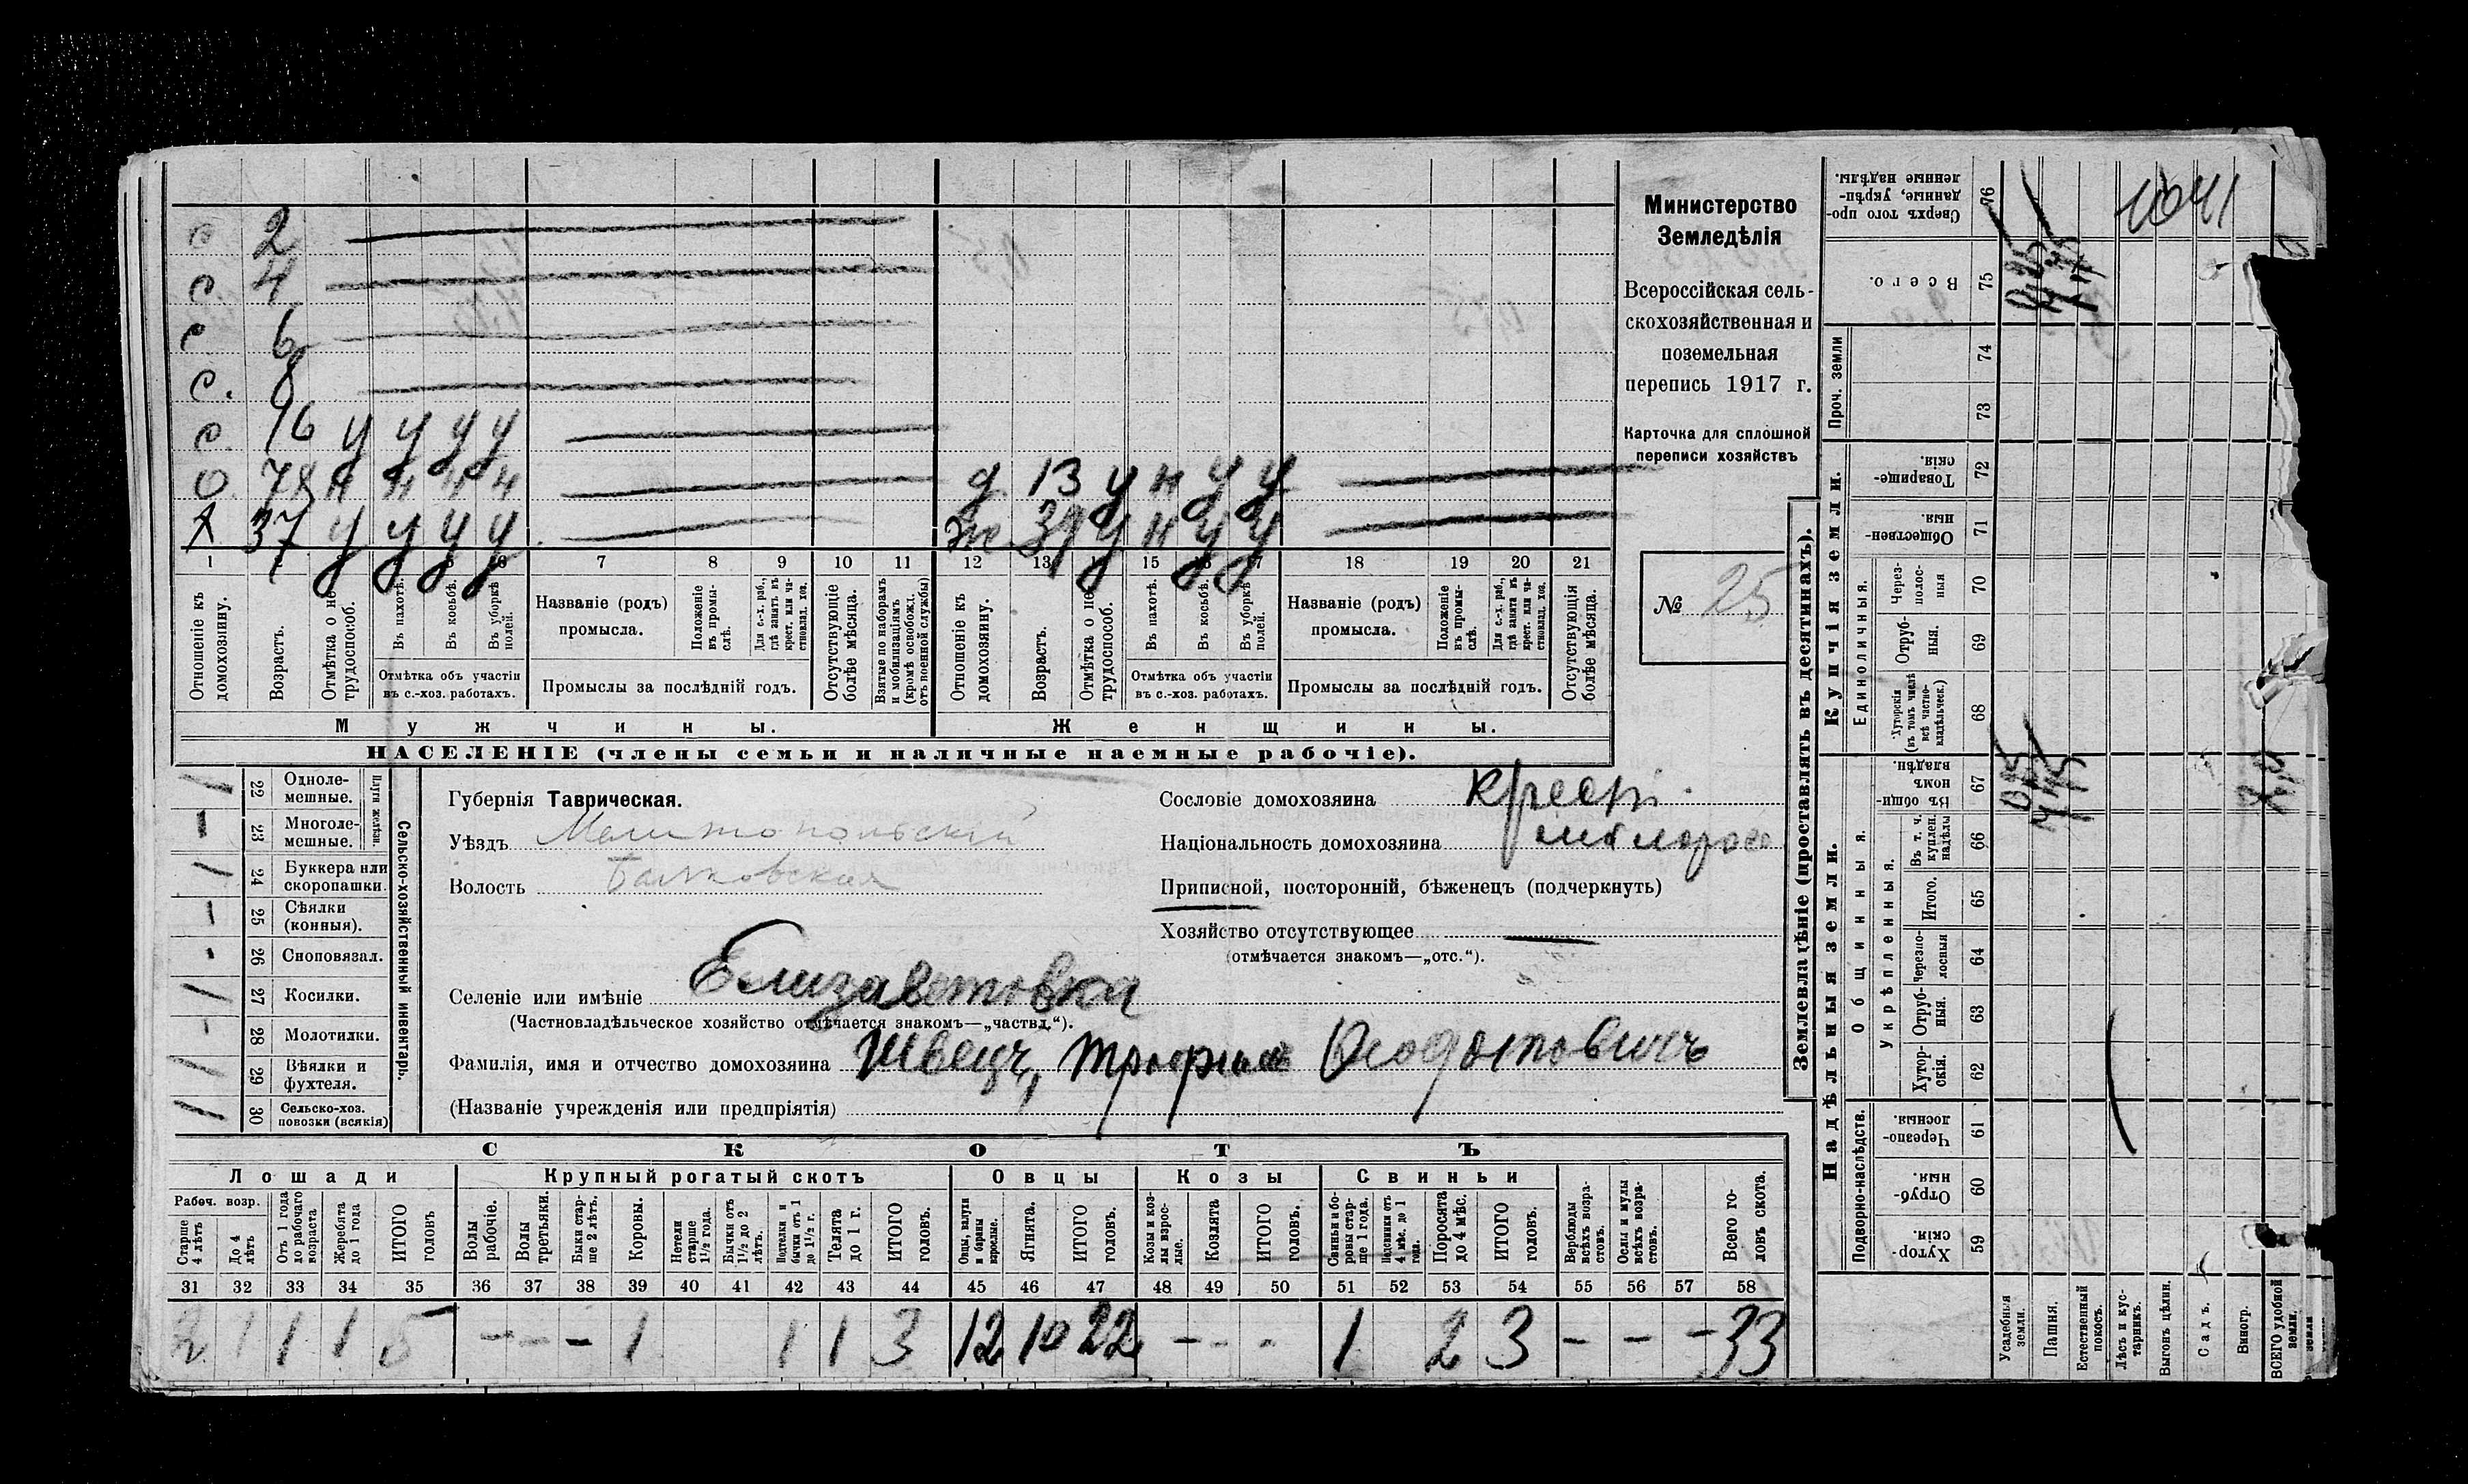 с 2
с 4
с 6
с. 8
с. 16 у у у у
о. 78 н н н н д 13 у н у у
х 37 у у у у. же 37 у н у у
1 7 8 9 10 11 12 13 15 18 19 20 21
Отношеніе къ домохозяину.
Возрастъ.
Отмѣтка о не трудоспособ.
Въ пахотѣ.
Въ косьбѣ.
Въ уборкѣ полей.
Отмѣтка объ участіи въ с.-хоз. работахъ.
Названіе (родъ) промысла.
Положеніе въ промыслѣ.
Для с.-х. раб., гдѣ занятъ въ крест. или частновлад. хоз.
Промыслы за послѣдній годъ.
Отсутствующіе болѣе мѣсяца.
Взятые по наборамъ и мобилизаціямъ (кромѣ освобожд. отъ военной службы)
Отношеніе къ домохозяину.
Возрастъ.
Отмѣтка о не трудоспособ.
Въ пахотѣ.
Въ косьбѣ.
Въ уборкѣ полей.
Отмѣтка объ участіи въ с.-хоз. работахъ.
Названіе (родъ) промысла.
Положеніе въ промыслѣ.
Для с.-х. раб., гдѣ занята въ крест. или частновлад. хоз.
Промыслы за послѣдній годъ.
Отсутствующія болѣе мѣсяца.
Мужчины. Женщины.
НАСЕЛЕНІЕ (члены семьи и наличные наемные рабочіе).
Министерство
Земледѣлія
Всероссійская сель-
скохозяйственная и
поземельная
перепись 1917 г.
Карточка для сплошной
переписи хозяйствъ
№ 25
Сельско-хозяйственный инвентарь.
Плуги желѣзн.
1 22 Одноле-мешные.
— 23 Многоле-мешные.
1 24 Буккера или скоропашки.
— 25 Сѣялки (конныя).
- 26 Сноповязал.
1 27 Косилки.
- 28 Молотилки.
1 29 Вѣялки и фухтеля.
1 30 Сельско-хоз. повозки (всякія)
Губернія Таврическая.
Уѣздъ Мелитопольскій
Волость Балковская
Сословіе домохозяина крест.
Національность домохозяина малоросс
Приписной, посторонній, бѣженецъ (подчеркнуть)
Хозяйство отсутствующее —
(отмѣчается знакомъ—„отс.“).
Селеніе или имѣніе Елизаветовка
(Частновладѣльческое хозяйство отмѣчается знакомъ—„частвд.“).
Фамилія, имя и отчество домохозяина Швецъ, Трофимъ Феодотовичъ
(Названіе учрежденія или предпріятія)
СКОТЪ
Лошади Крупный рогатый скотъ Овцы Козы Свиньи
Рабоч. возр.
Старше 4 лѣтъ
До 4 лѣтъ
Отъ 1 года до рабочаго возраста
Жеребята до 1 года
ИТОГО головъ
Волы рабочіе.
Волы третьяки.
Быки старше 2 лѣтъ.
Коровы.
Нетели старше 1½ года.
Бычки отъ 1½ до 2 лѣтъ.
Подтелки и бычки отъ 1 до 1½ г.
Телята до 1 г.
ИТОГО головъ.
Овцы, валухи и бараны взрослые.
Ягнята.
ИТОГО головъ.
Козы и козлы взрослые.
Козлята
ИТОГО головъ.
Свиньи и боровы старше 1 года.
Подсвинки отъ 4 мѣс. до 1 года.
Поросята до 4 мѣс.
ИТОГО головъ.
Верблюды всѣхъ возрастовъ.
Ослы и мулы всѣхъ возрастовъ.
Всего головъ скота.
31 32 33 34 35 36 37 38 39 40 41 42 43 44 45 46 47 48 49 50 51 52 53 54 55 56 57 58
2 1 1 1 5 — — — 1 1 1 3 12 10 22 — - - 1 2 3 — — — 33
Землевладѣніе (проставлять въ десятинахъ).
Надѣльныя земли. Купчія земли. Проч. земли
Подворно-наслѣдств. Общинныя Единоличныя.
Укрѣпленныя.
Хутор-скія. 59
Отруб-ныя 60
Черезпо-лосныя. 61
Хутор-скія. 62
Отруб-ныя. 63
Черезпо-лосныя 64
Итого. 65
Въ т. ч. куплен. надѣлы 66
Въ общин-номъ владѣн. 67
Хуторскія (въ томъ числѣ всѣ частно-владѣльческ.) 68
Отруб-ныя. 69
Через-полос-ныя 70
Обществен-ныя. 71
Товарище-скія. 72
73
74
Всего. 75
Сверхъ того про-данные, укрѣп-ленные надѣлы. 76
1041
Усадебныя земли.
Пашня.
Естественный покосъ.
Лѣсъ и кус-тарникъ.
Выгонъ цѣлин.
Садъ.
Виногр.
ВСЕГО удобной земли.